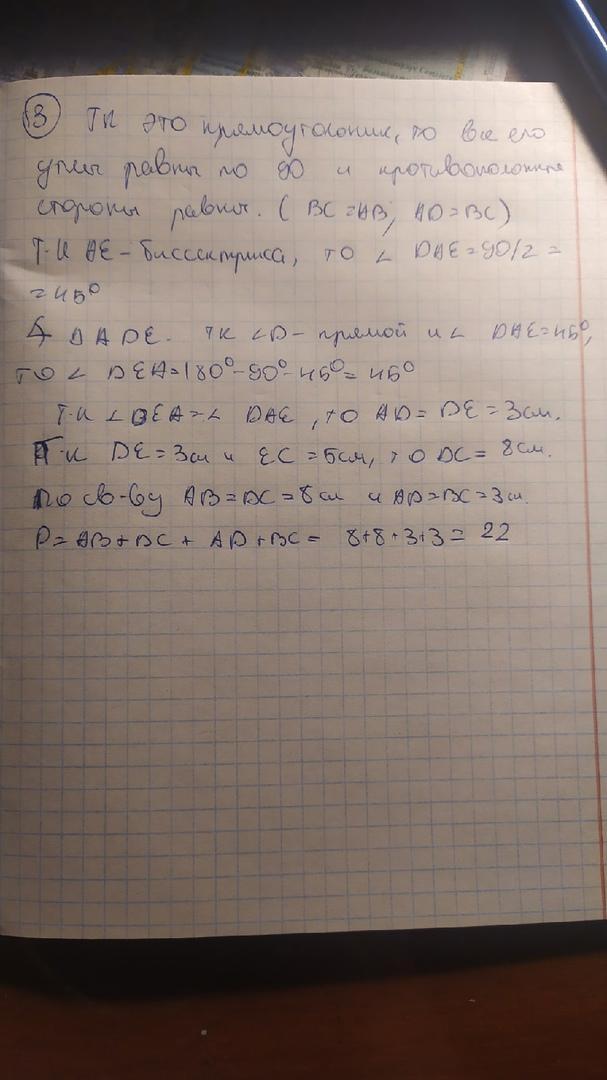 3 Тк это прямоугольник, то все его
углы равны по 90 и противоположные
стороны равны. (BC=AB, AD=BC)
Т.к AE-биссектриса, то ∠ DAE=90/2=
=45°
∆ ADE. тк ∠D- прямой и ∠ DAE=45°,
то ∠ DEA=180°-90°-45°=45°
Т.к ∠DEA=∠ DAE, то AD=DE=3см.
Т.к DE=3см и EC=5см, то DC= 8см.
По св-ву AB=DC=8см и AD=BC=3см.
P=AB+DC+AD+BC= 8+8+3+3= 22